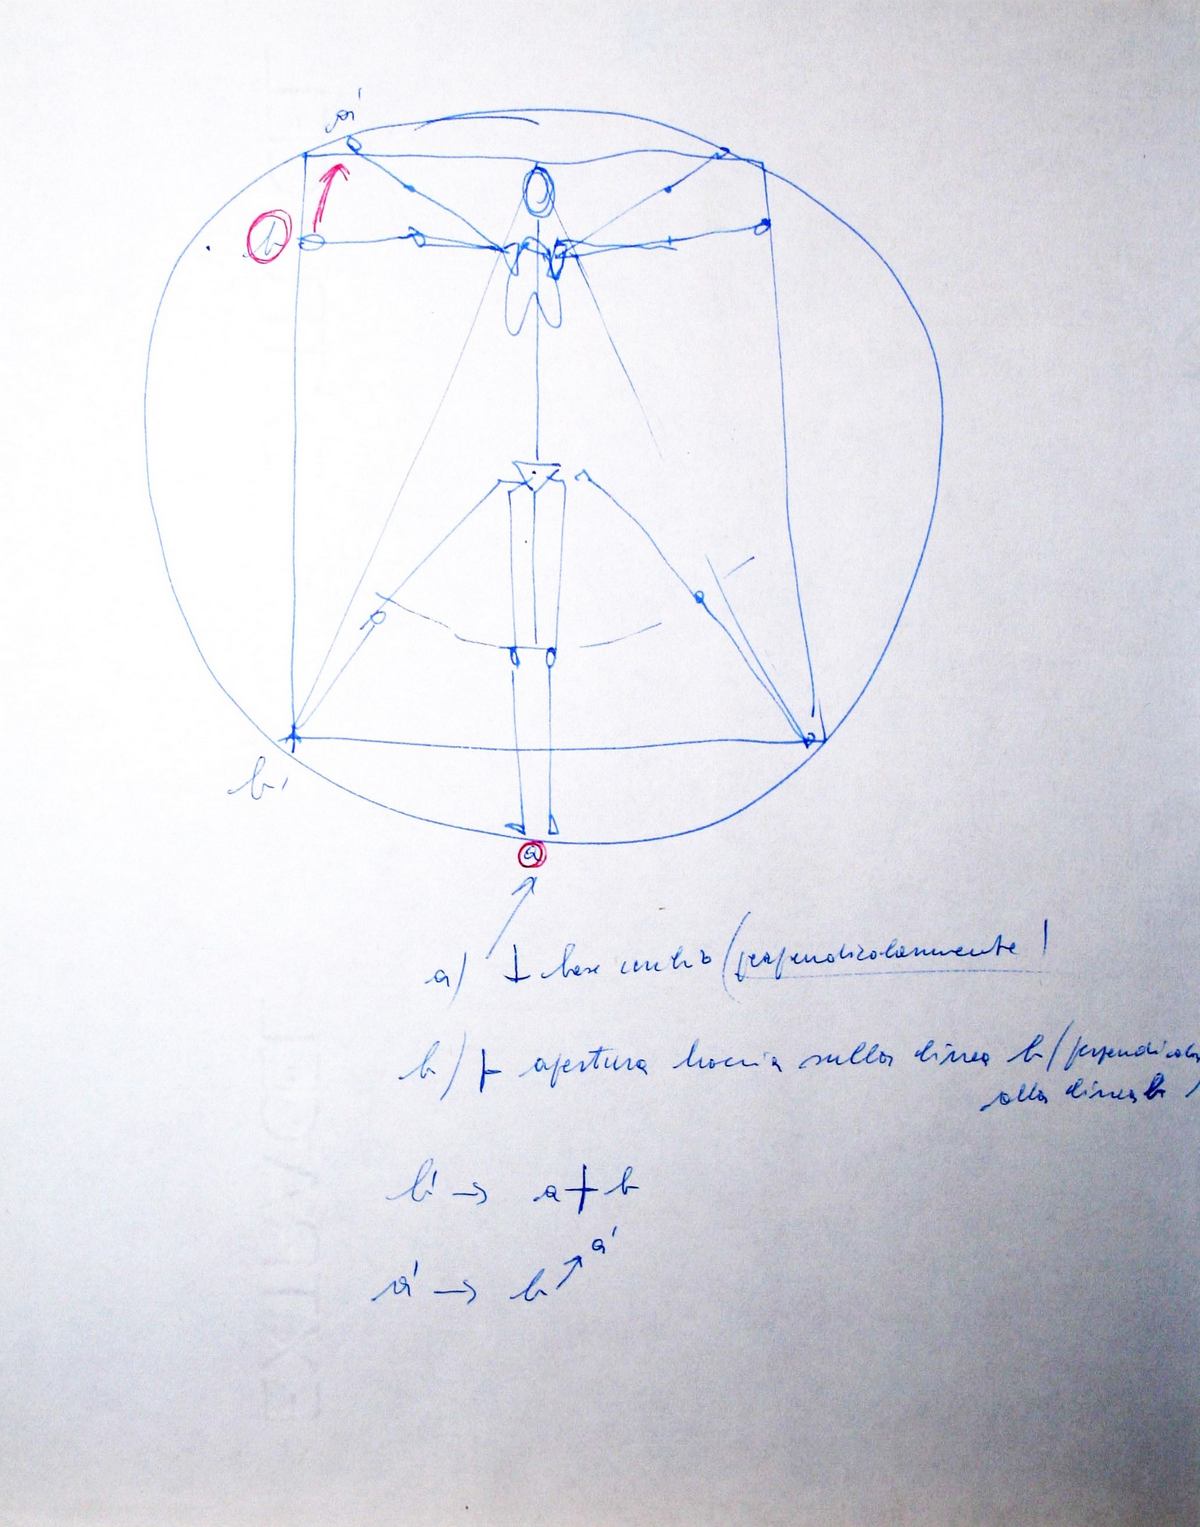 a'
b
b'
a
a) ↓ base centro (perpendicolarmente)
b) ⊢ apertura braccia sulla linea b (perpendicolar
alla linea b)
b' → a + b
a' → b ↗ a'